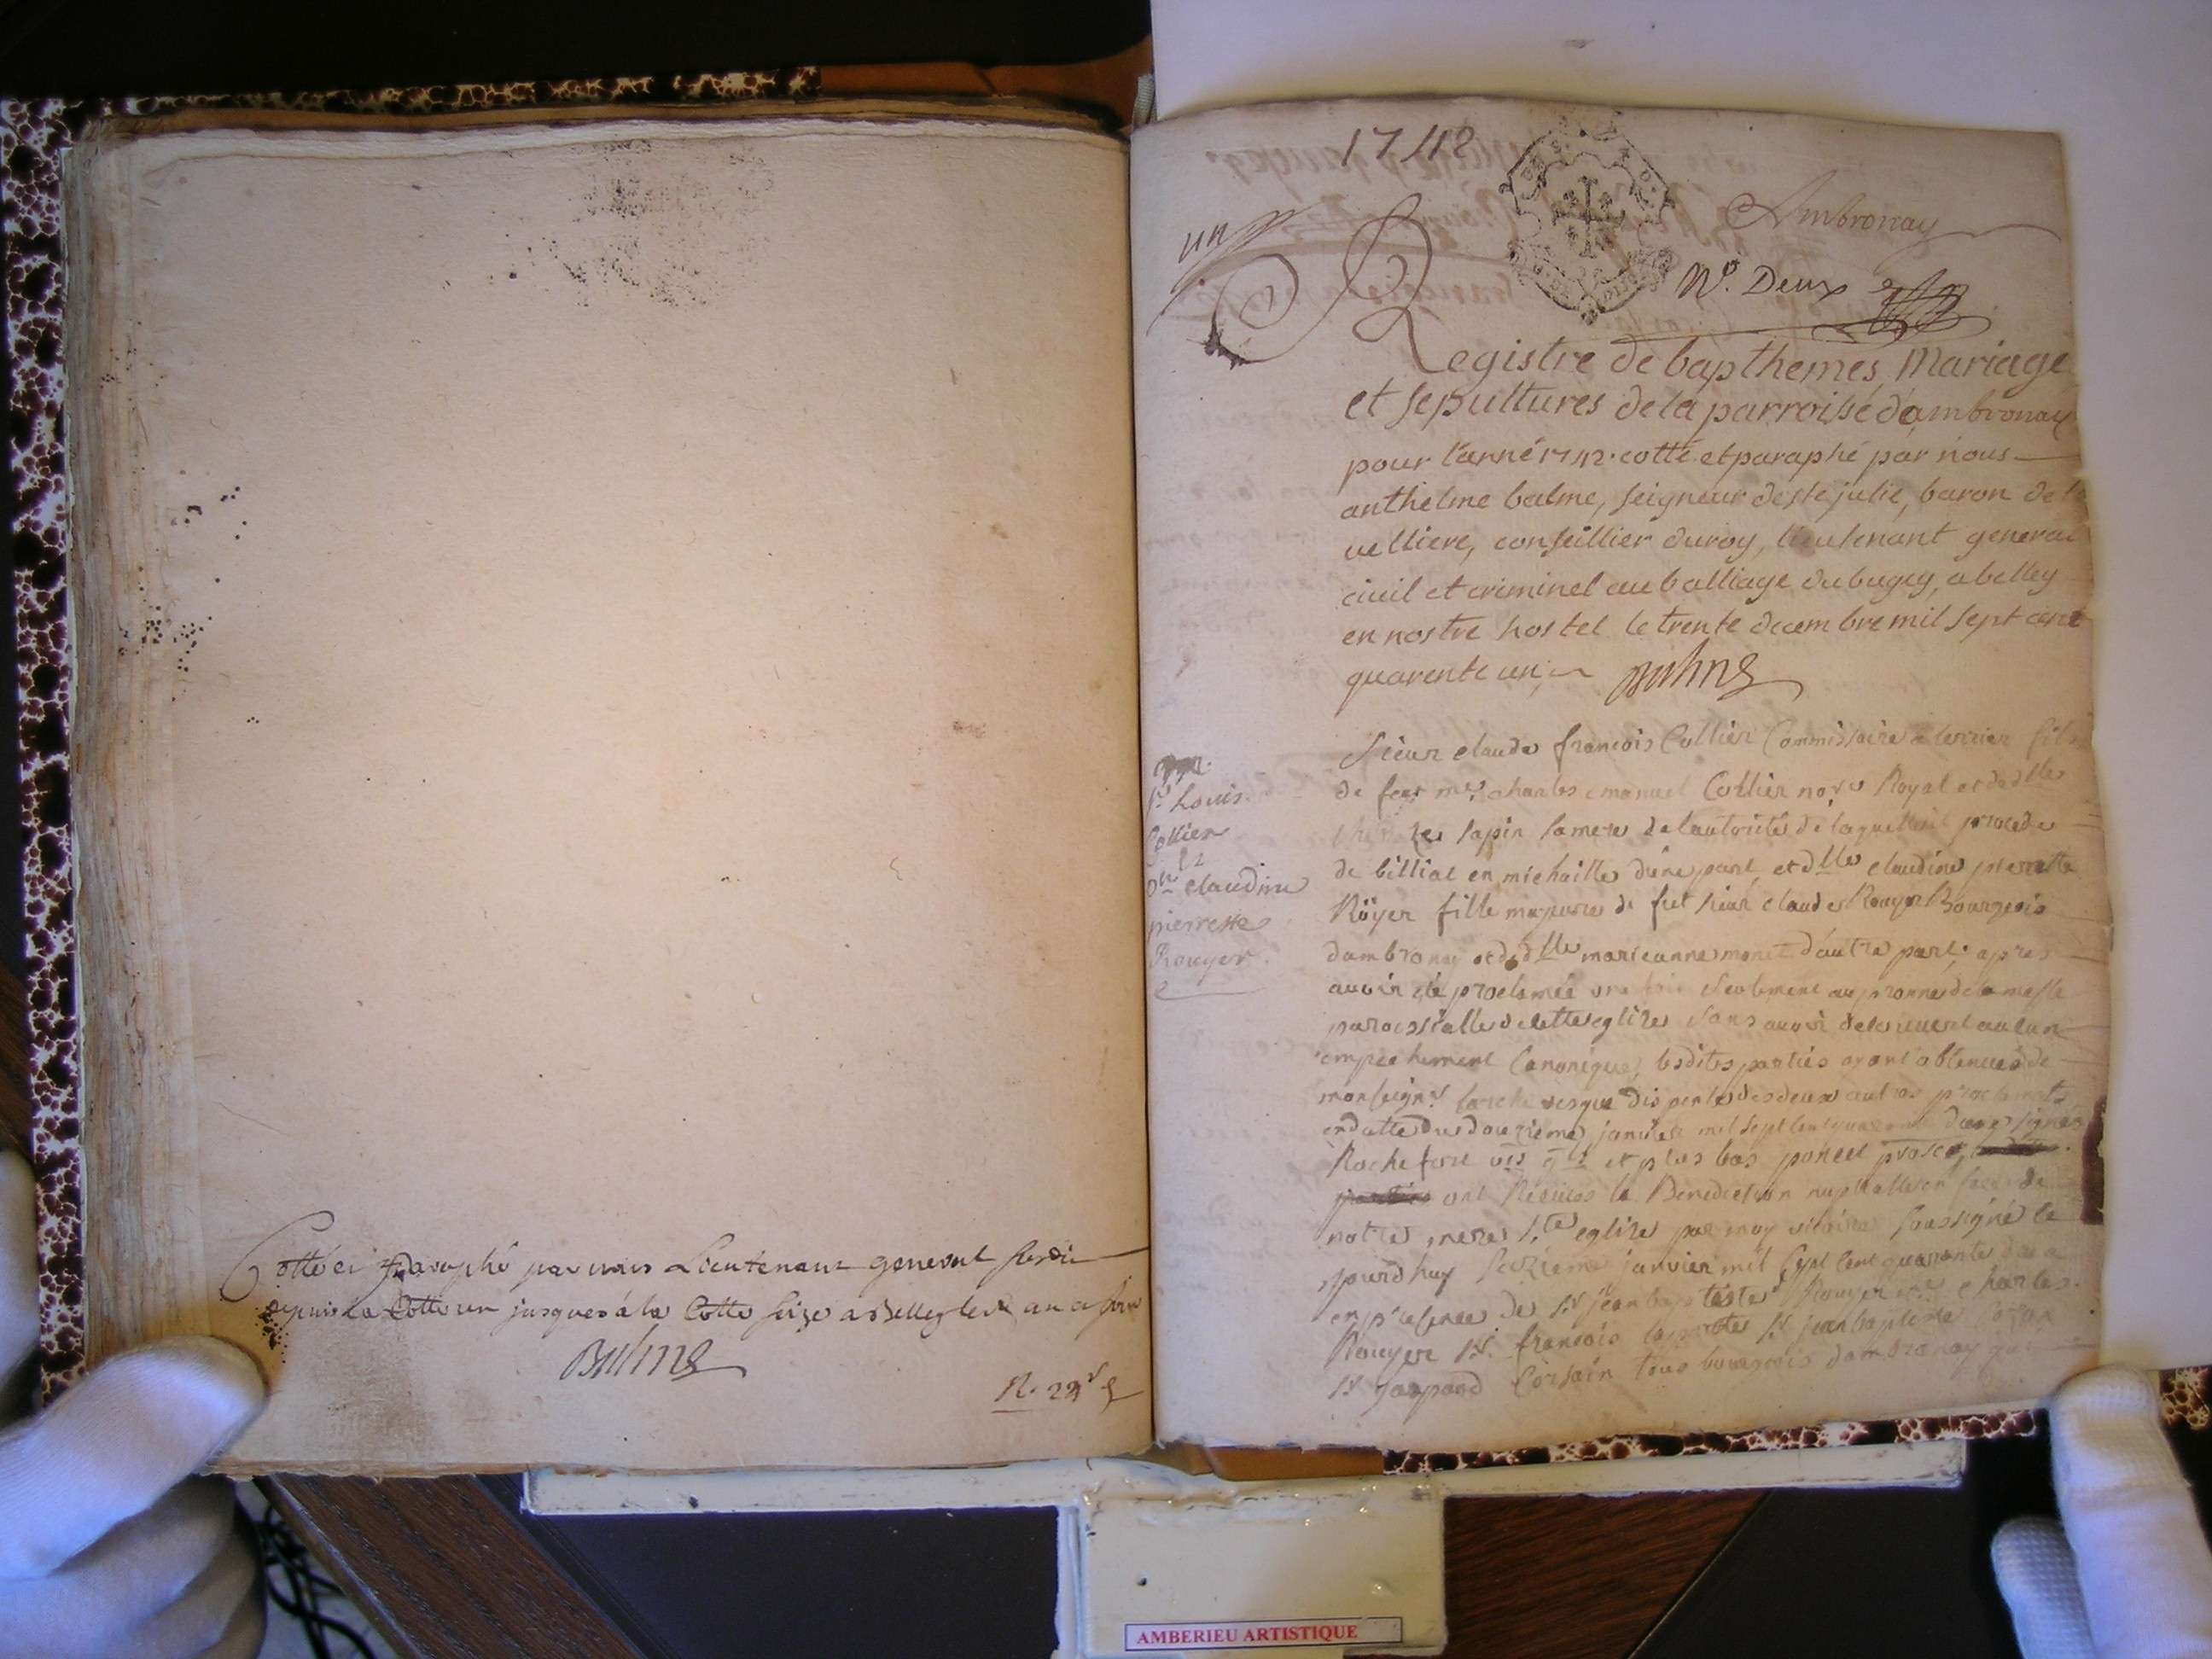 Cotté et paraphé par nous Lieutenant general susdit
depuis la Cotte un jusques à la Cotte seize a Belley les an
Balme
R. 22
1742
un
Ambronay
N°. Deux
Registre de bapthemes, Mariage
et sepultures de la parroisse d'ambronay
pour l'année 1742. cotté et paraphé par nous
anthelme balme, seigneur de ste julie, baron de
velliere, conseillier du roy, lieutenant general
civil et criminel au balliage du bugey, a belley
en nostre hostel le trente decembre mil sept cent
quarente un
Balme
Sr Louis
Collier
Dlle claudine
pierrette
Rouyer
Sieur claude francois Collier Commissaire a terrier fils
de feu me charles emanuel Collier nore Royal et de dlle
sapin sa mere de l'autorité de laquelle il procede
de billiat en michaille d'une part, et dlle claudine pierrette
Röyer fille majeure de fut sieur claude Rouyer Bourgeois
dambronay et de dlle marieanne monet d'autre part, apres
avoir été proclamée une fois seulement au pronne de la messe
paroissialle de cette eglise sans avoir decouvert aucun
empechement Canonique, lesdites parties ayant obtenues de
monseignr larchevesque dispense des deux autres proclamats
en datte du douzieme janvier mil sept cent quarante deux signés
Rochefort et plus bas poncet
parties ont Reçues la Benediction nuptialle en face de
notre mere ste eglise par moy vicaire soussigné ce
jourdhuy seizieme janvier mil sept cent quarante deux
en presence de sr jean baptiste Rouyer charles
Rouyer sr. francois sr jean baptiste
sr gaspard Corsain tous bourgeois dambronay qui
AMBERIEU ARTISTIQUE